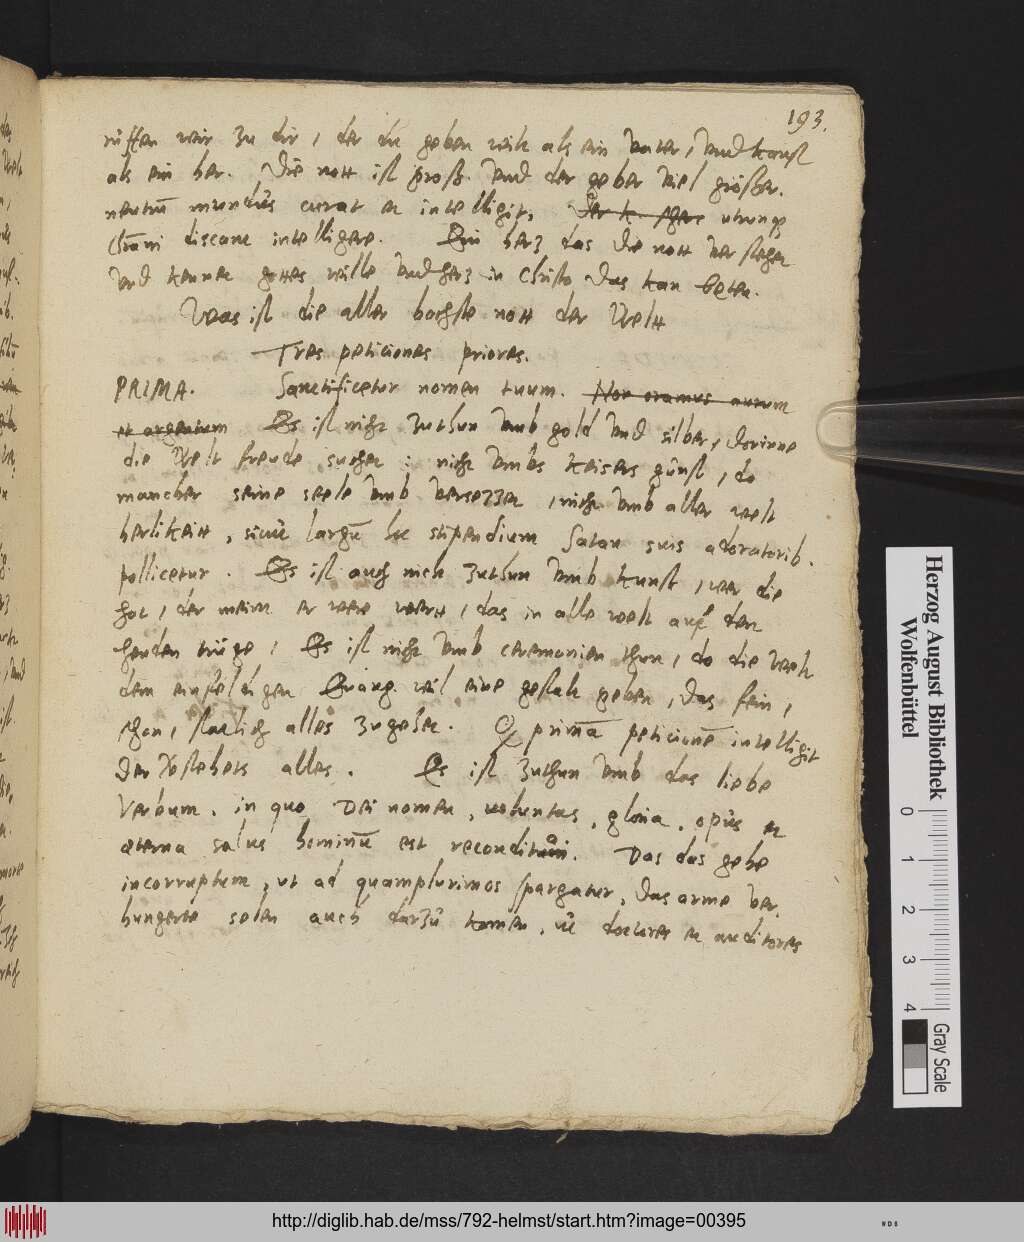 193.
ruffen wir zu dir, der du geben wilt als ein vater, vnd kanst
als ein her. Die nott ist gross. vnd der geber viel grösser.
neutrū mundūs curat et intelligit, utrunq̄
discant intelligere. Ein herz das die nott verstehet
vnd kennet gottes wille vnd herz in Christo das kan beten.
Was ist die aller hochste nott der Welt
Tres peticiones priores.
PRIMA. Sanctificetur nomen tuum. Non oramus aurum
et argentum Es ist nicht zuthun vmb gold vnd silber, dorinne
die Welt freude suchet : nicht vmbs Keisers gūnst, do
mancher seine seele vmb versezzet, nicht vmb aller welt
herlikeitt, sicut largū hoc stipendium Satan suis adoratorib.
pollicetur. Es ist auch nicht zuthun vmb kunst, wer die
hat, der meint er were werth, das in alle welt auf den
henden trüge, Es ist nicht vmb ceremonien thun, do die welt
dem einfeltigen Euang. wil eine gestalt geben, das fein,
schon, statlich alles zugehet. Q primā peticionē intelligit
der verstehets alles. Es ist zuthun vmb das liebe
Verbum. in quo Dei nomen, voluntas, gloria, opus et
æterna salus hominū est recondita. Das das gehe
incorruptum, vt ad quamplurimos spargatur, das arme ver,
hungerte selen auch darzū komen, vt doctores et auditores
Herzog August Bibliothek
Wolfenbüttel
0 1 2 3 4
Gray Scale
http://diglib.hab.de/mss/792-helmst/start.htm?image=00395